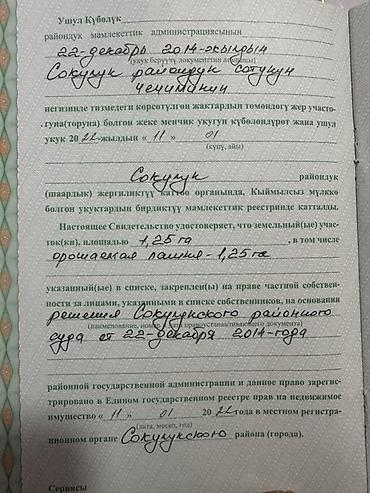 Ушул Күбөлүк
райондук мамлекеттик администрациясынын
22-декабрь 2014-жылдын
(укук берүүчү документтин аталышы)
Сокулук райондук сотунун
чечиминин
негизинде тизмедеги көрсөтүлгөн жактардын төмөндөгү жер участо-
гуна(торуна) болгон жеке менчик укугун күбөлөндүрөт жана ушул
укук 2022-жылдын « 11 » 01
(күнү, айы)
Сокулук райондук
(шаардык) жергиликтүү каттоо органында, Кыймылсыз мүлккө
болгон укуктардын бирдиктүү мамлекеттик реестринде катталды.
Настоящее Свидетельство удостоверяет, что земельный(ые) учас-
ток(ки), площадью 1,25 га, в том числе
орошаемая пашня - 1,25 га
указанный(ые) в списке, закреплен(ы) на праве частной собствен-
ности за лицами, указанными в списке собственников, на основании
решения Сокулукского районного
(наименование, номер и дата правоустанавливающего документа)
суда от 22-декабря 2014-года
районной государственной администрации и данное право зарегис-
трировано в Едином государственном реестре прав на недвижимое
имущество « 11 » 01 2022 года в местном регистра-
(дата, месяц, год)
ционном органе Сокулукского района (города).
Сериясы